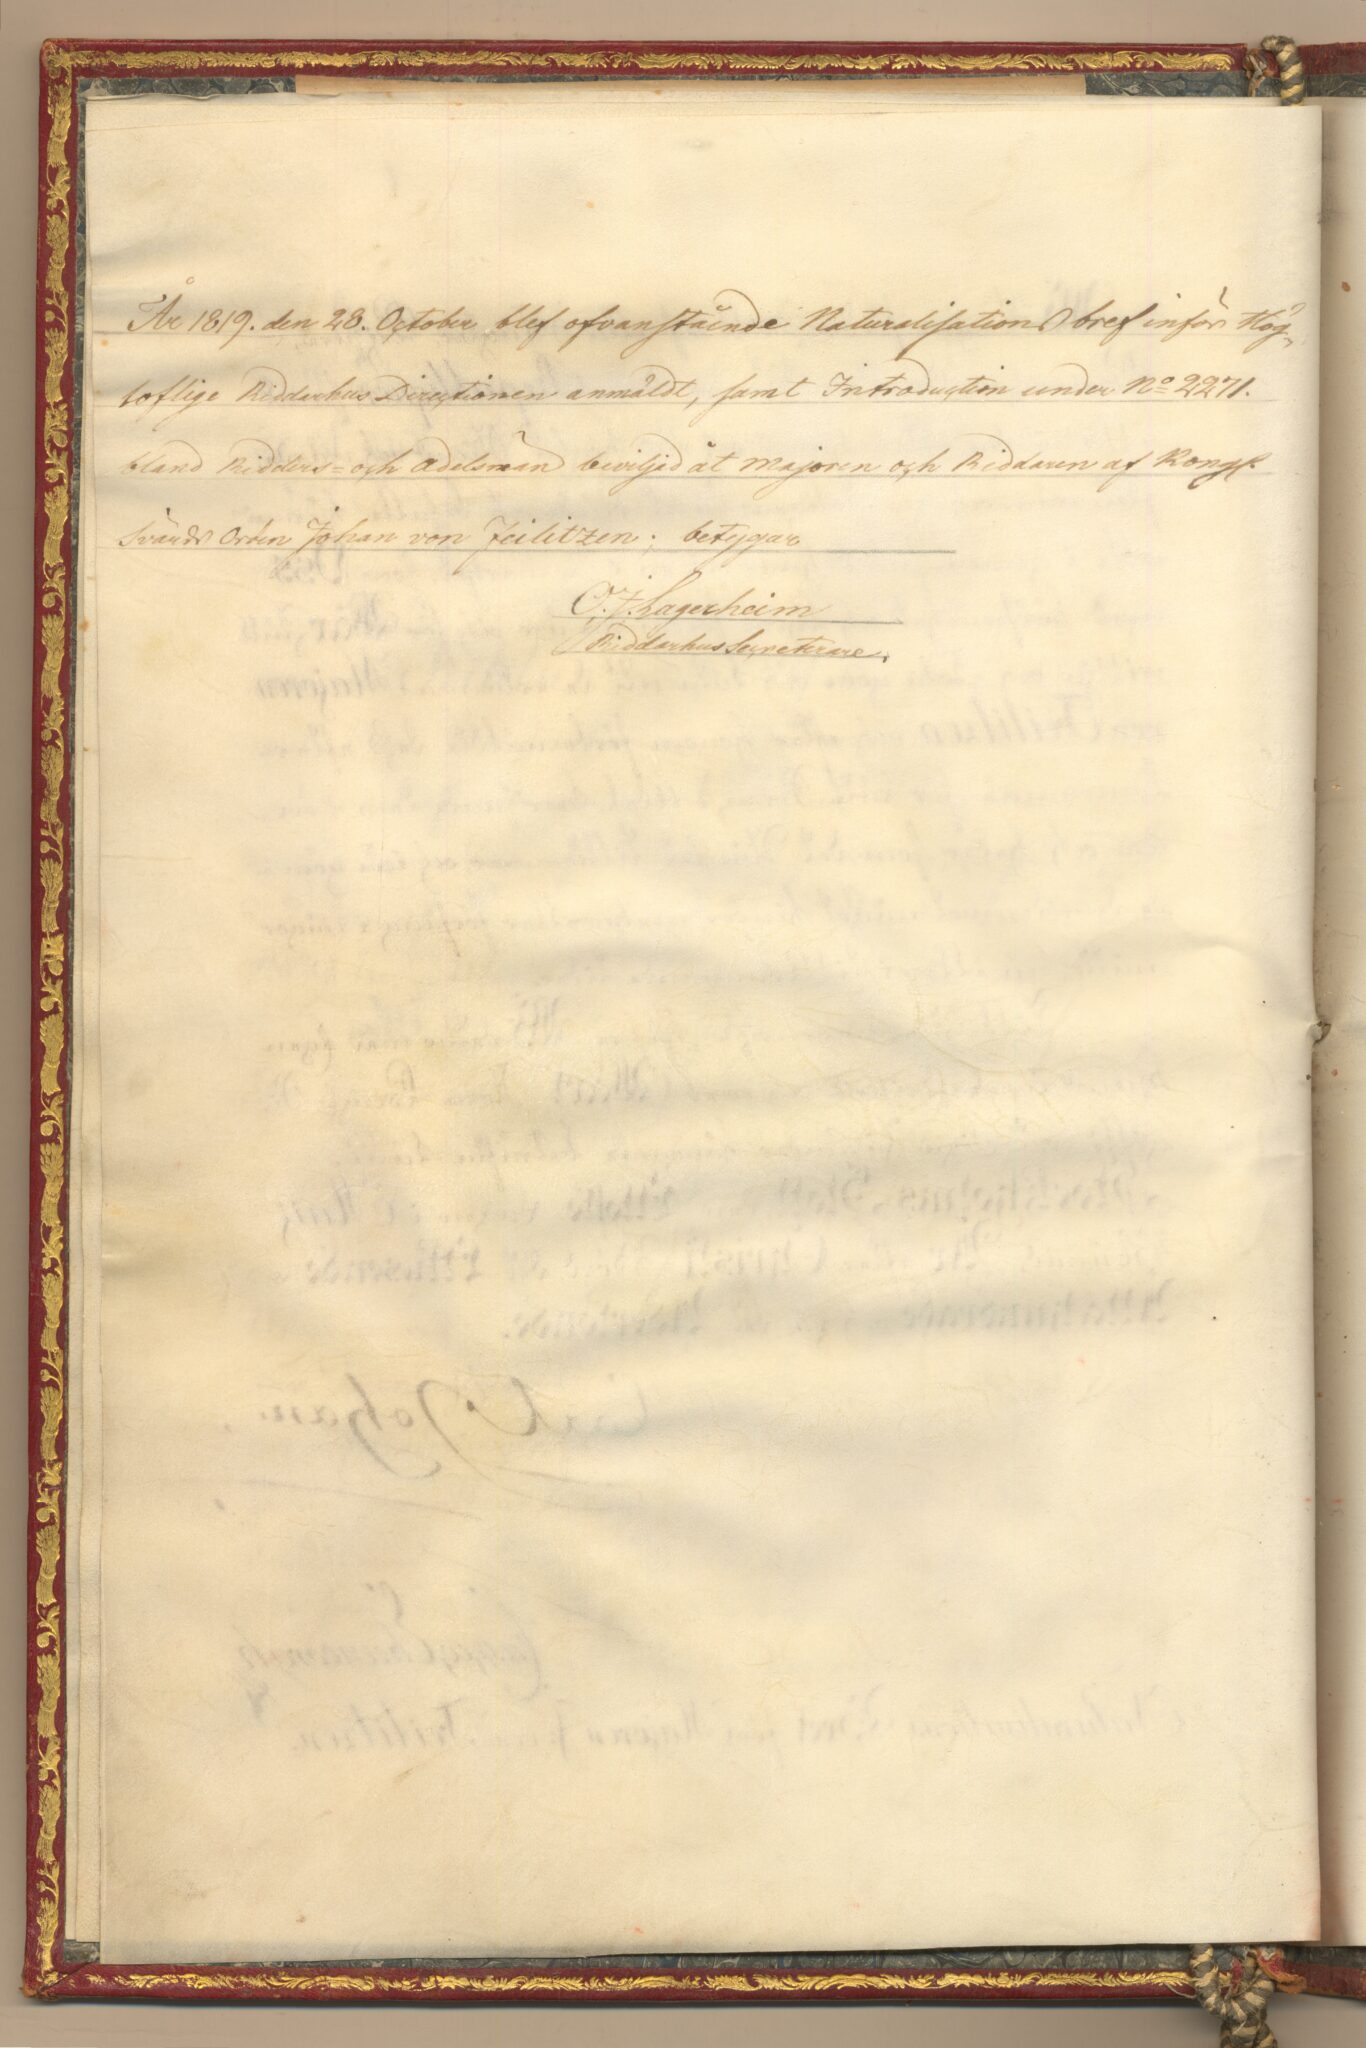 År 1819. den 28. October, blef ofvanstående Naturalisations bref inför Hög-
loflige Riddarhus Directionen anmäldt, samt Introduction under No 2271.
bland Ridders- och Adelsmän beviljad åt Majoren och Riddaren af Kongl.
Svärds Orden Johan von Feilitzen; betygar
O. F. Lagerheim
Riddarhus Secreterare.